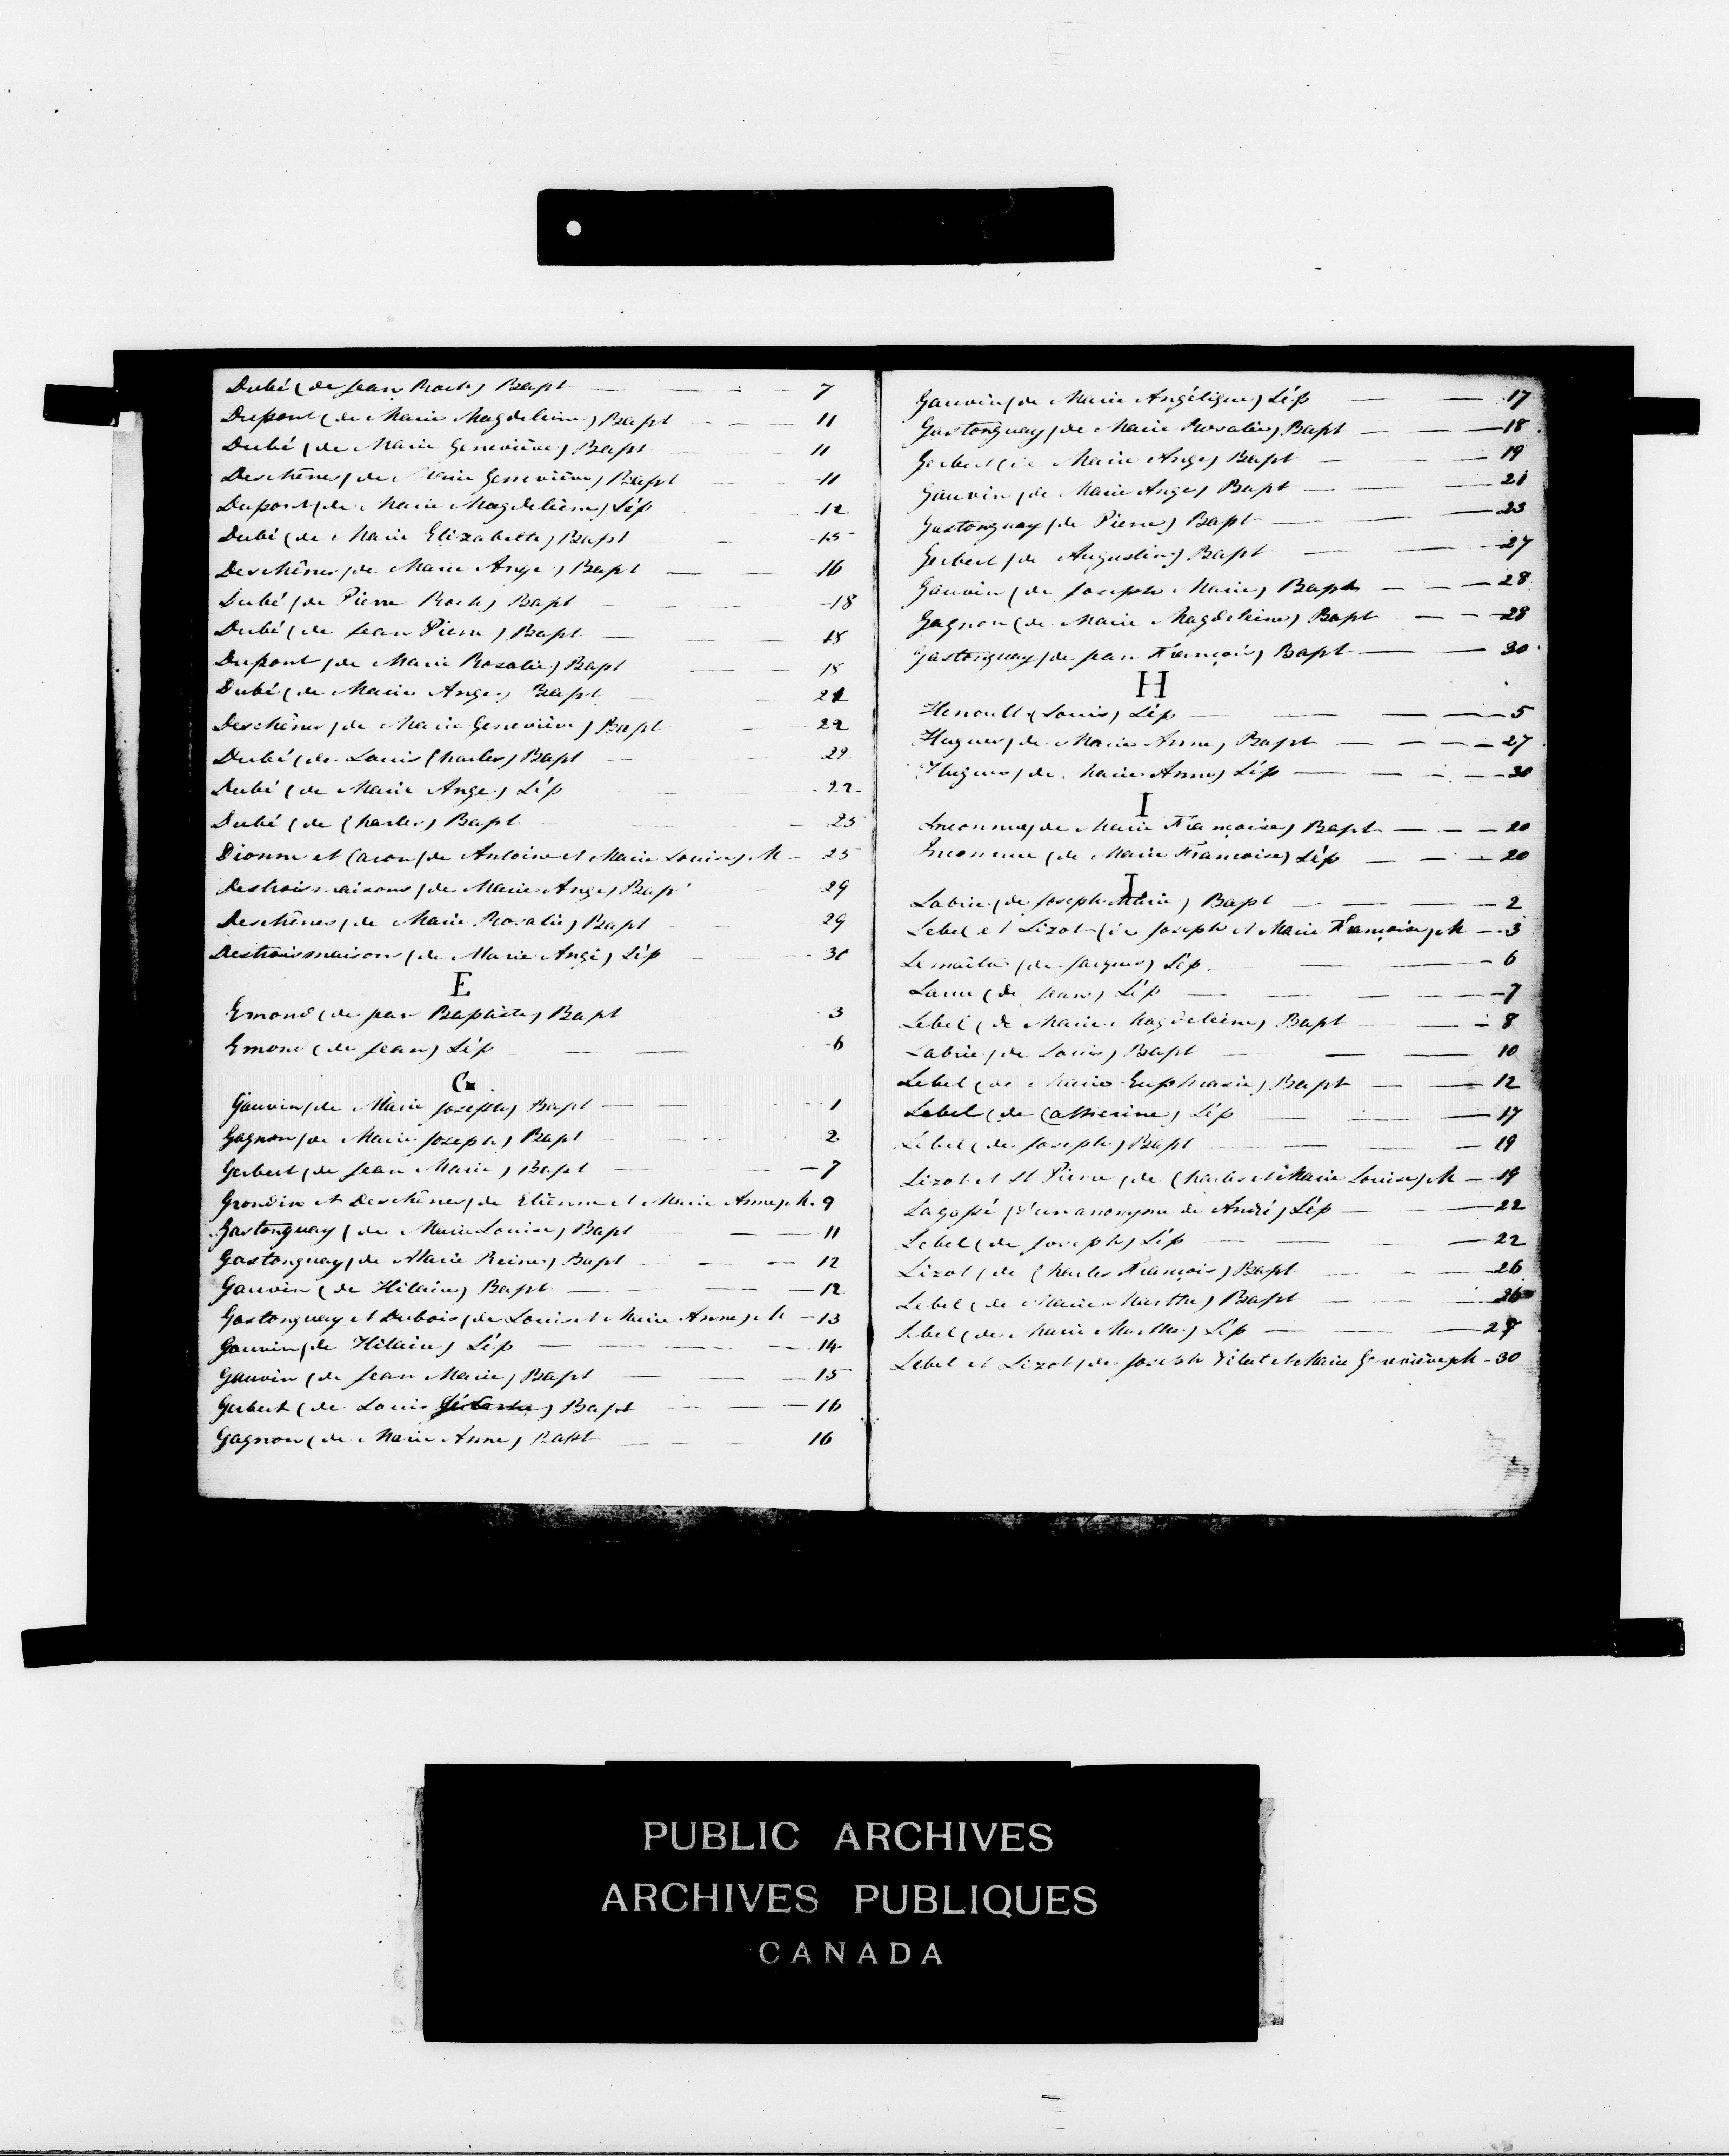 Dubé (de Jean Roch) Bapt — 7
Dupont (de Marie Magdeleine) Bapt — 11
Dubé (de Marie Geneviève) Bapt — 11
Deschênes (de Marie Geneviève) Bapt — 11
Dupont (de Marie Magdeleine) Sép — 12
Dubé (de Marie Elizabeth) Bapt — 15
Deschênes (de Marie Ange) Bapt — 16
Dubé (de Pierre Roch) Bapt — 18
Dubé (de Jean Pierre) Bapt — 18
Dupont (de Marie Rosalie) Bapt — 18
Dubé (de Marie Ange) Bapt — 21
Deschênes (de Marie Geneviève) Bapt — 22
Dubé (de Louis Charles) Bapt — 22
Dubé (de Marie Ange) Sép — 22
Dubé (de Charles) Bapt — 25
Dionne et Caron (de Antoine et Marie Louise) M — 25
Destroismaisons (de Marie Ange) Bapt — 29
Deschênes (de Marie Rosalie) Bapt — 29
Destroismaisons (de Marie Ange) Sép — 30
E
Emond (de Jean Baptiste) Bapt — 3
Emond (de Jean) Sép — 6
G
Gauvin (de Marie Joseph) Bapt — 1
Gagnon (de Marie Joseph) Bapt — 2
Gerbert (de Jean Marie) Bapt — 7
Grondin et Deschênes (de Etienne et Marie Anne) M. 9
Gastonguay (de Marie Louise) Bapt — 11
Gastonguay (de Marie Reine) Bapt — 12
Gauvin (de Hilaire) Bapt — 12
Gastonguay et Dubois (de Louis et Marie Anne) M — 13
Gauvin (de Hilaire) Sép — 14
Gauvin (de Jean Marie) Bapt — 15
Gerbert (de Louis) Bapt — 16
Gagnon (de Marie Anne) Bapt — 16
Gauvin (de Marie Angélique) Sép — 17
Gastonguay (de Marie Rosalie) Bapt — 18
Gerbert (de Marie Ange) Bapt — 19
Gauvin (de Marie Ange) Bapt — 21
Gastonguay (de Pierre) Bapt — 23
Gerbert (de Augustin) Bapt — 27
Gauvin (de Joseph Marie) Bapt — 28
Gagnon (de Marie Magdeleine) Bapt — 28
Gastonguay (de Jean François) Bapt — 30
H
Henault (Louis) Sép — 5
Hugues (de Marie Anne) Bapt — 27
Hugues (de Marie Anne) Sép — 30
I
Inconnue (de Marie Françoise) Bapt — 20
Inconnue (de Marie Françoise) Sép — 20
L
Labrie (de Joseph Marie) Bapt — 2
Lebel et Lizot (de Joseph et Marie Françoise) M — 3
Lemaître (de Jacques) Sép — 6
(de Jean) Sép — 7
Lebel (de Marie Magdeleine) Bapt — 8
Labrie (de Louis) Bapt — 10
Lebel (de Marie Euphrasie) Bapt — 12
Lebel (de Catherine) Sép — 17
Lebel (de Joseph) Bapt — 19
Lizot et St Pierre (de Charles et Marie Louise) M — 19
Lagassé (d'un anonyme de André) Sép — 22
Lebel (de Joseph) Sép — 22
Lizot (de Charles François) Bapt — 26
Lebel (de Marie Marthe) Bapt — 26
Lebel (de Marie Marthe) Sép — 27
Lebel et Lizot (de Joseph et Marie Geneviève) M — 30
PUBLIC ARCHIVES
ARCHIVES PUBLIQUES
CANADA